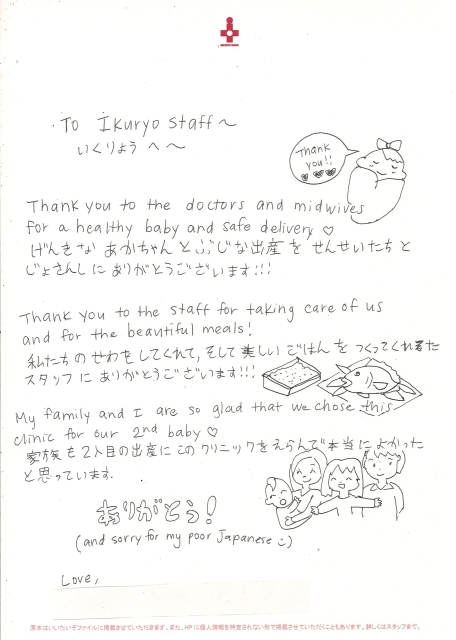 To Ikuryo staff～
いくりょう へ～
Thank you!!
Thank you to the doctors and midwives
for a healthy baby and safe delivery ♡
げんきな あかちゃん と ぶじな 出産 を せんせいたち と
じょさんし に ありがとうございます!!!
Thank you to the staff for taking care of us
and for the beautiful meals!
私たちの せわを してくれて, そして 美しい ごはん を つくってくれた
スタッフ に ありがとうございます!!!
My family and I are so glad that we chose this
clinic for our 2nd baby ♡
家族 を 2人目の 出産 に この クリニック を えらんで 本当に よかった
と思っています.
ありがとう!
(and sorry for my poor Japanese :)
Love,
原本はいいたい子ファイルに掲載させていただきます。また、HPに個人情報を特定されない形で掲載させていただくこともあります。詳しくはスタッフまで。